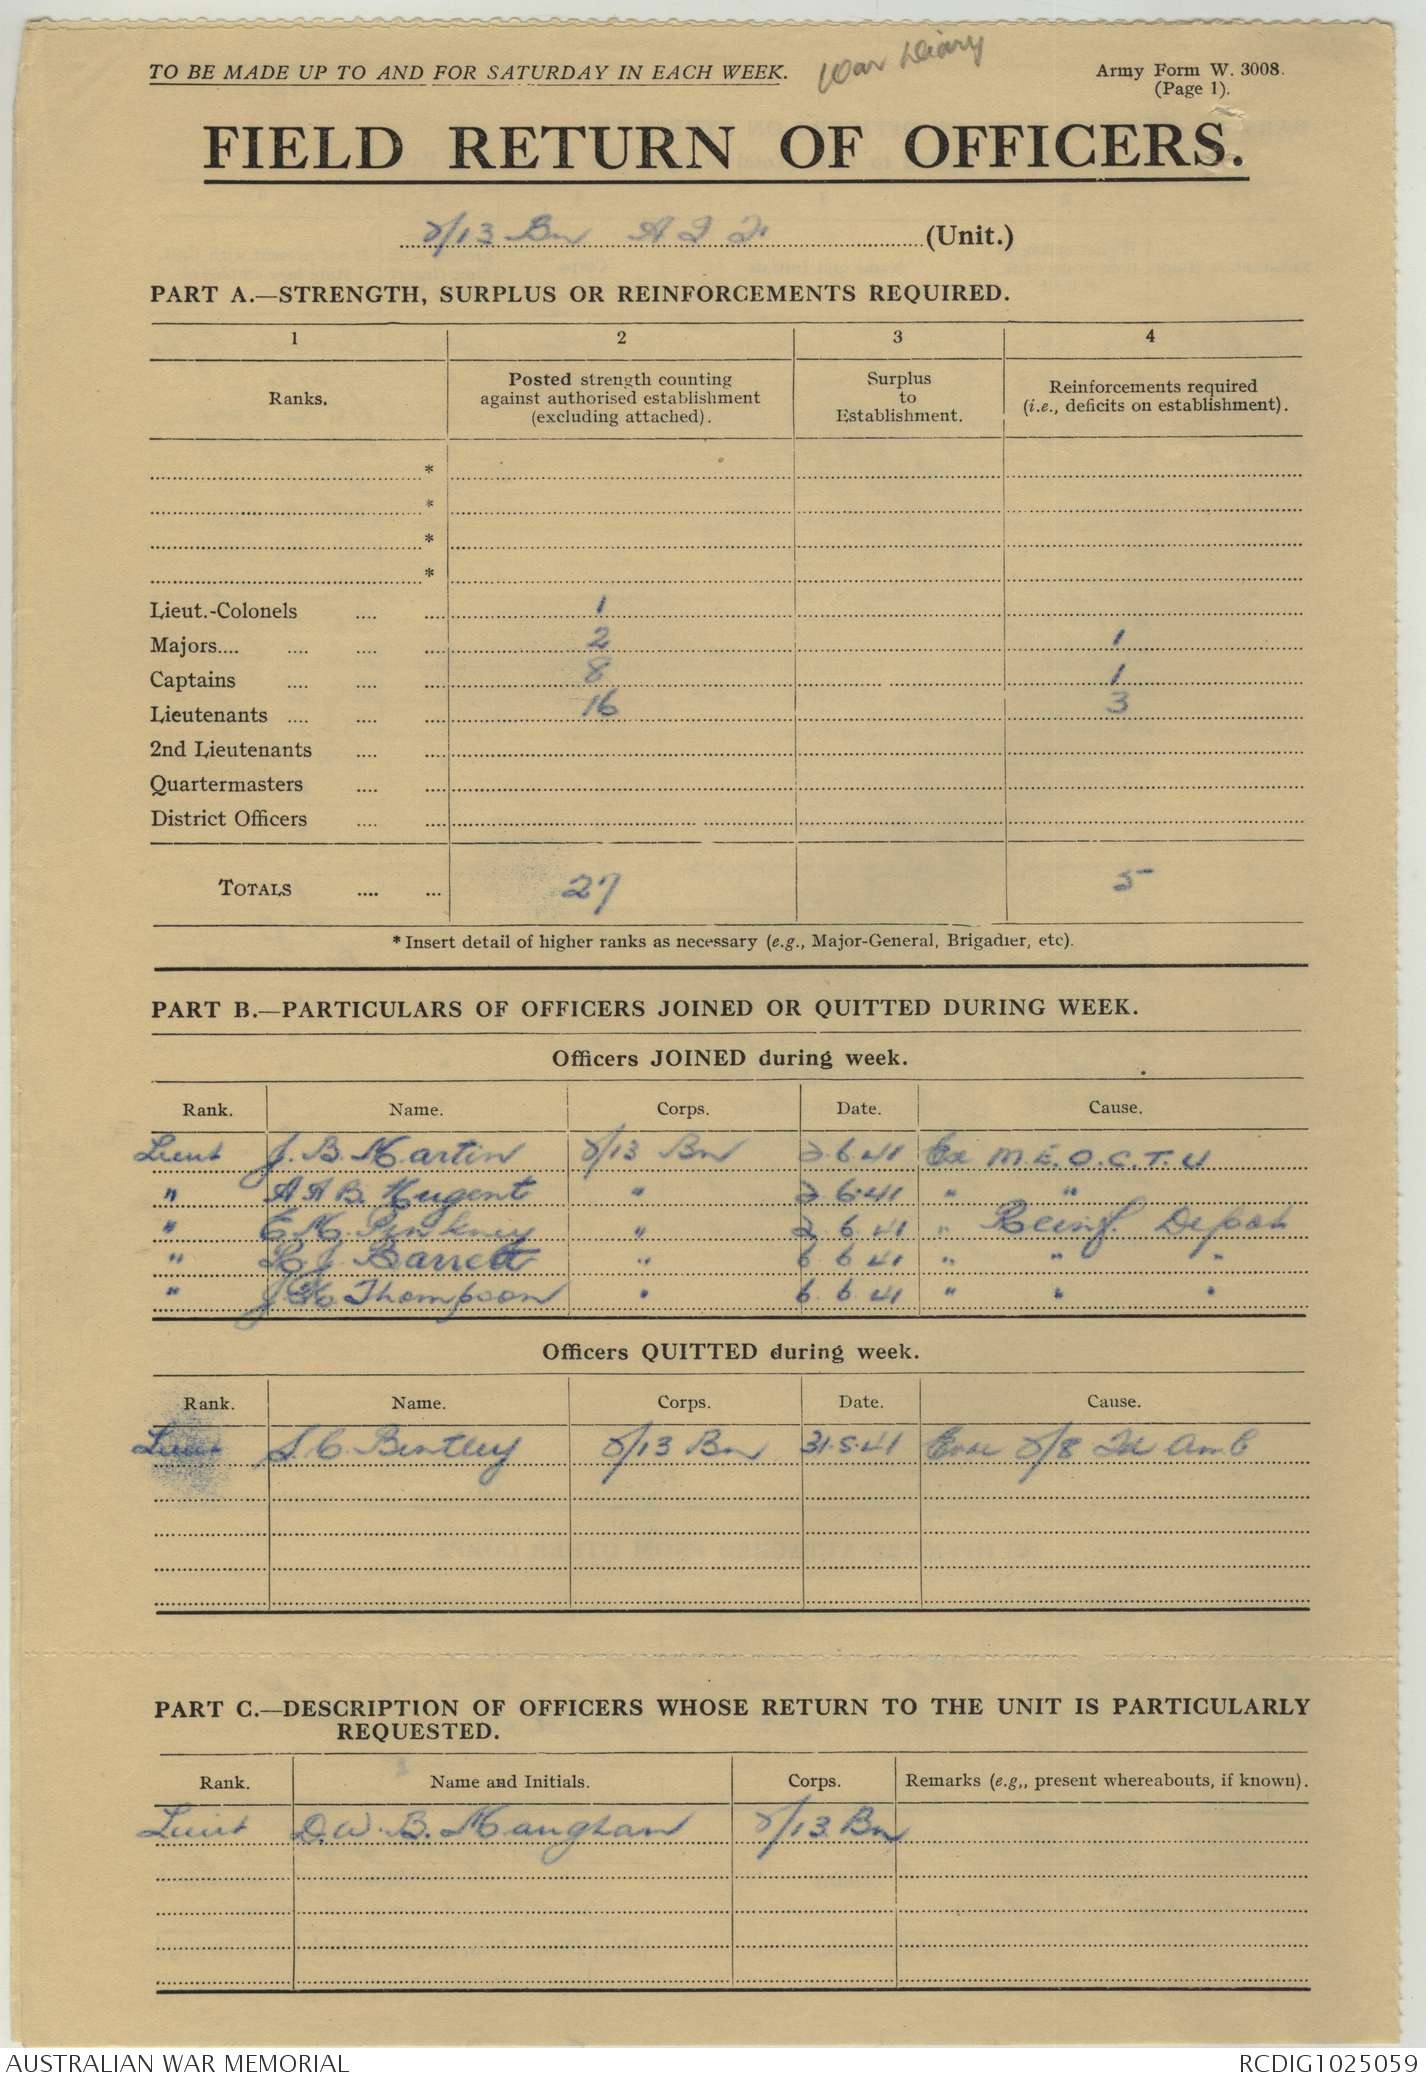 TO BE MADE UP TO AND FOR SATURDAY IN EACH WEEK.
War Diary
Army Form W. 3008.
(Page 1).
FIELD RETURN OF OFFICERS.
2/13 Bn A I F (Unit.)
PART A.—STRENGTH, SURPLUS OR REINFORCEMENTS REQUIRED.
1 2 3 4
Ranks. Posted strength counting against authorised establishment (excluding attached). Surplus to Establishment. Reinforcements required (i.e., deficits on establishment).
*
*
*
*
Lieut.-Colonels .... .... 1
Majors.... .... .... .... 2 1
Captains .... .... .... 8 1
Lieutenants .... .... .... 16 3
2nd Lieutenants .... ....
Quartermasters .... ....
District Officers .... ....
TOTALS .... ... 27 5
* Insert detail of higher ranks as necessary (e.g., Major-General, Brigadier, etc).
PART B.—PARTICULARS OF OFFICERS JOINED OR QUITTED DURING WEEK.
Officers JOINED during week.
Rank. Name. Corps. Date. Cause.
Lieut J. B. Martin 2/13 Bn 2 6 41 Ex M.E.O.C.T.U
" A A B. Nugent " 2 6.41 " "
" E M. Pinkney " 2 6.41 " Reinf. Depot
" R J. Barrett " 6 6 41 " " "
" J.H. Thompson " 6. 6 41 " " "
Officers QUITTED during week.
Rank. Name. Corps. Date. Cause.
Lieut S. C. Bentley 2/13 Bn 31.5.41 Evac 2/8 Fd Amb
PART C.—DESCRIPTION OF OFFICERS WHOSE RETURN TO THE UNIT IS PARTICULARLY
REQUESTED.
Rank. Name and Initials. Corps. Remarks (e.g,, present whereabouts, if known).
Lieut D. W. B. Maughan 2/13 Bn
AUSTRALIAN WAR MEMORIAL RCDIG1025059